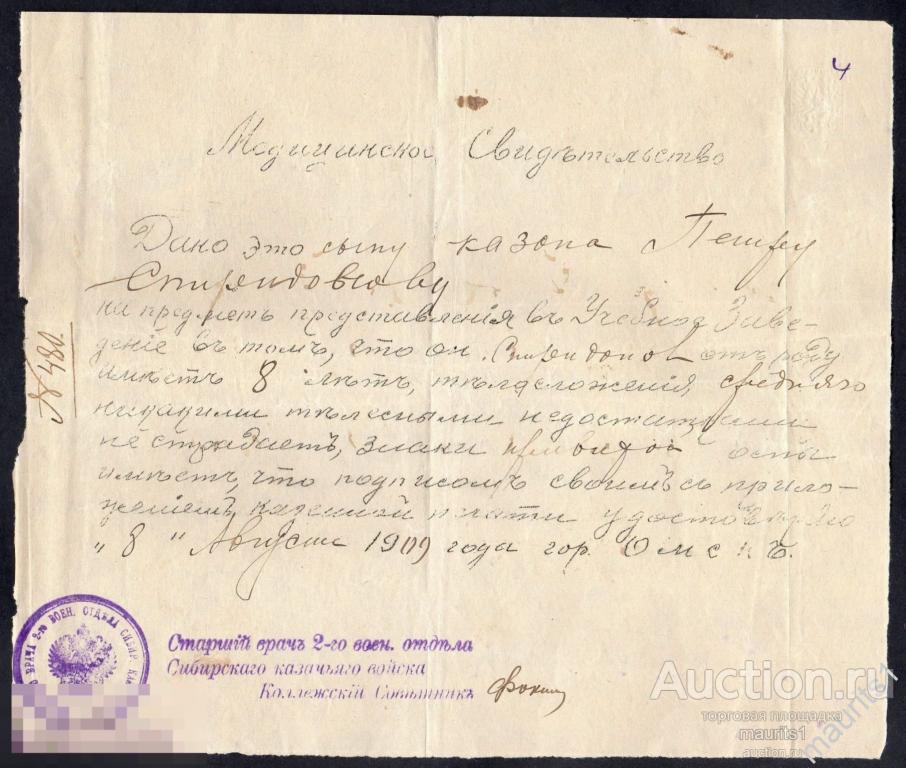 4
Медицинское Свидѣтельство
Дано это сыну казака Петру
Спиридонову
на предметъ представленія въ Учебное Заве-
деніе въ томъ, что он Спиридоновъ отъ роду
имѣетъ 8 лѣтъ, тѣлосложенія средняго
никакими тѣлесными недостатками
не страдаетъ, знаки привитой оспы
имѣетъ, что подписомъ своимъ съ прило-
женіемъ казенной печати удостовѣряю
„8 " Августа 1909 года гор. Омскъ.
№ 480
ВРАЧА 2-го ВОЕН. ОТДѢЛА СИБИР. КАЗ
Старшій врачъ 2-го воен. отдѣла
Сибирскаго казачьяго войска
Коллежскій Совѣтникъ
Auction.ru
торговая площадка
maurits1
auction.ru
maurits1